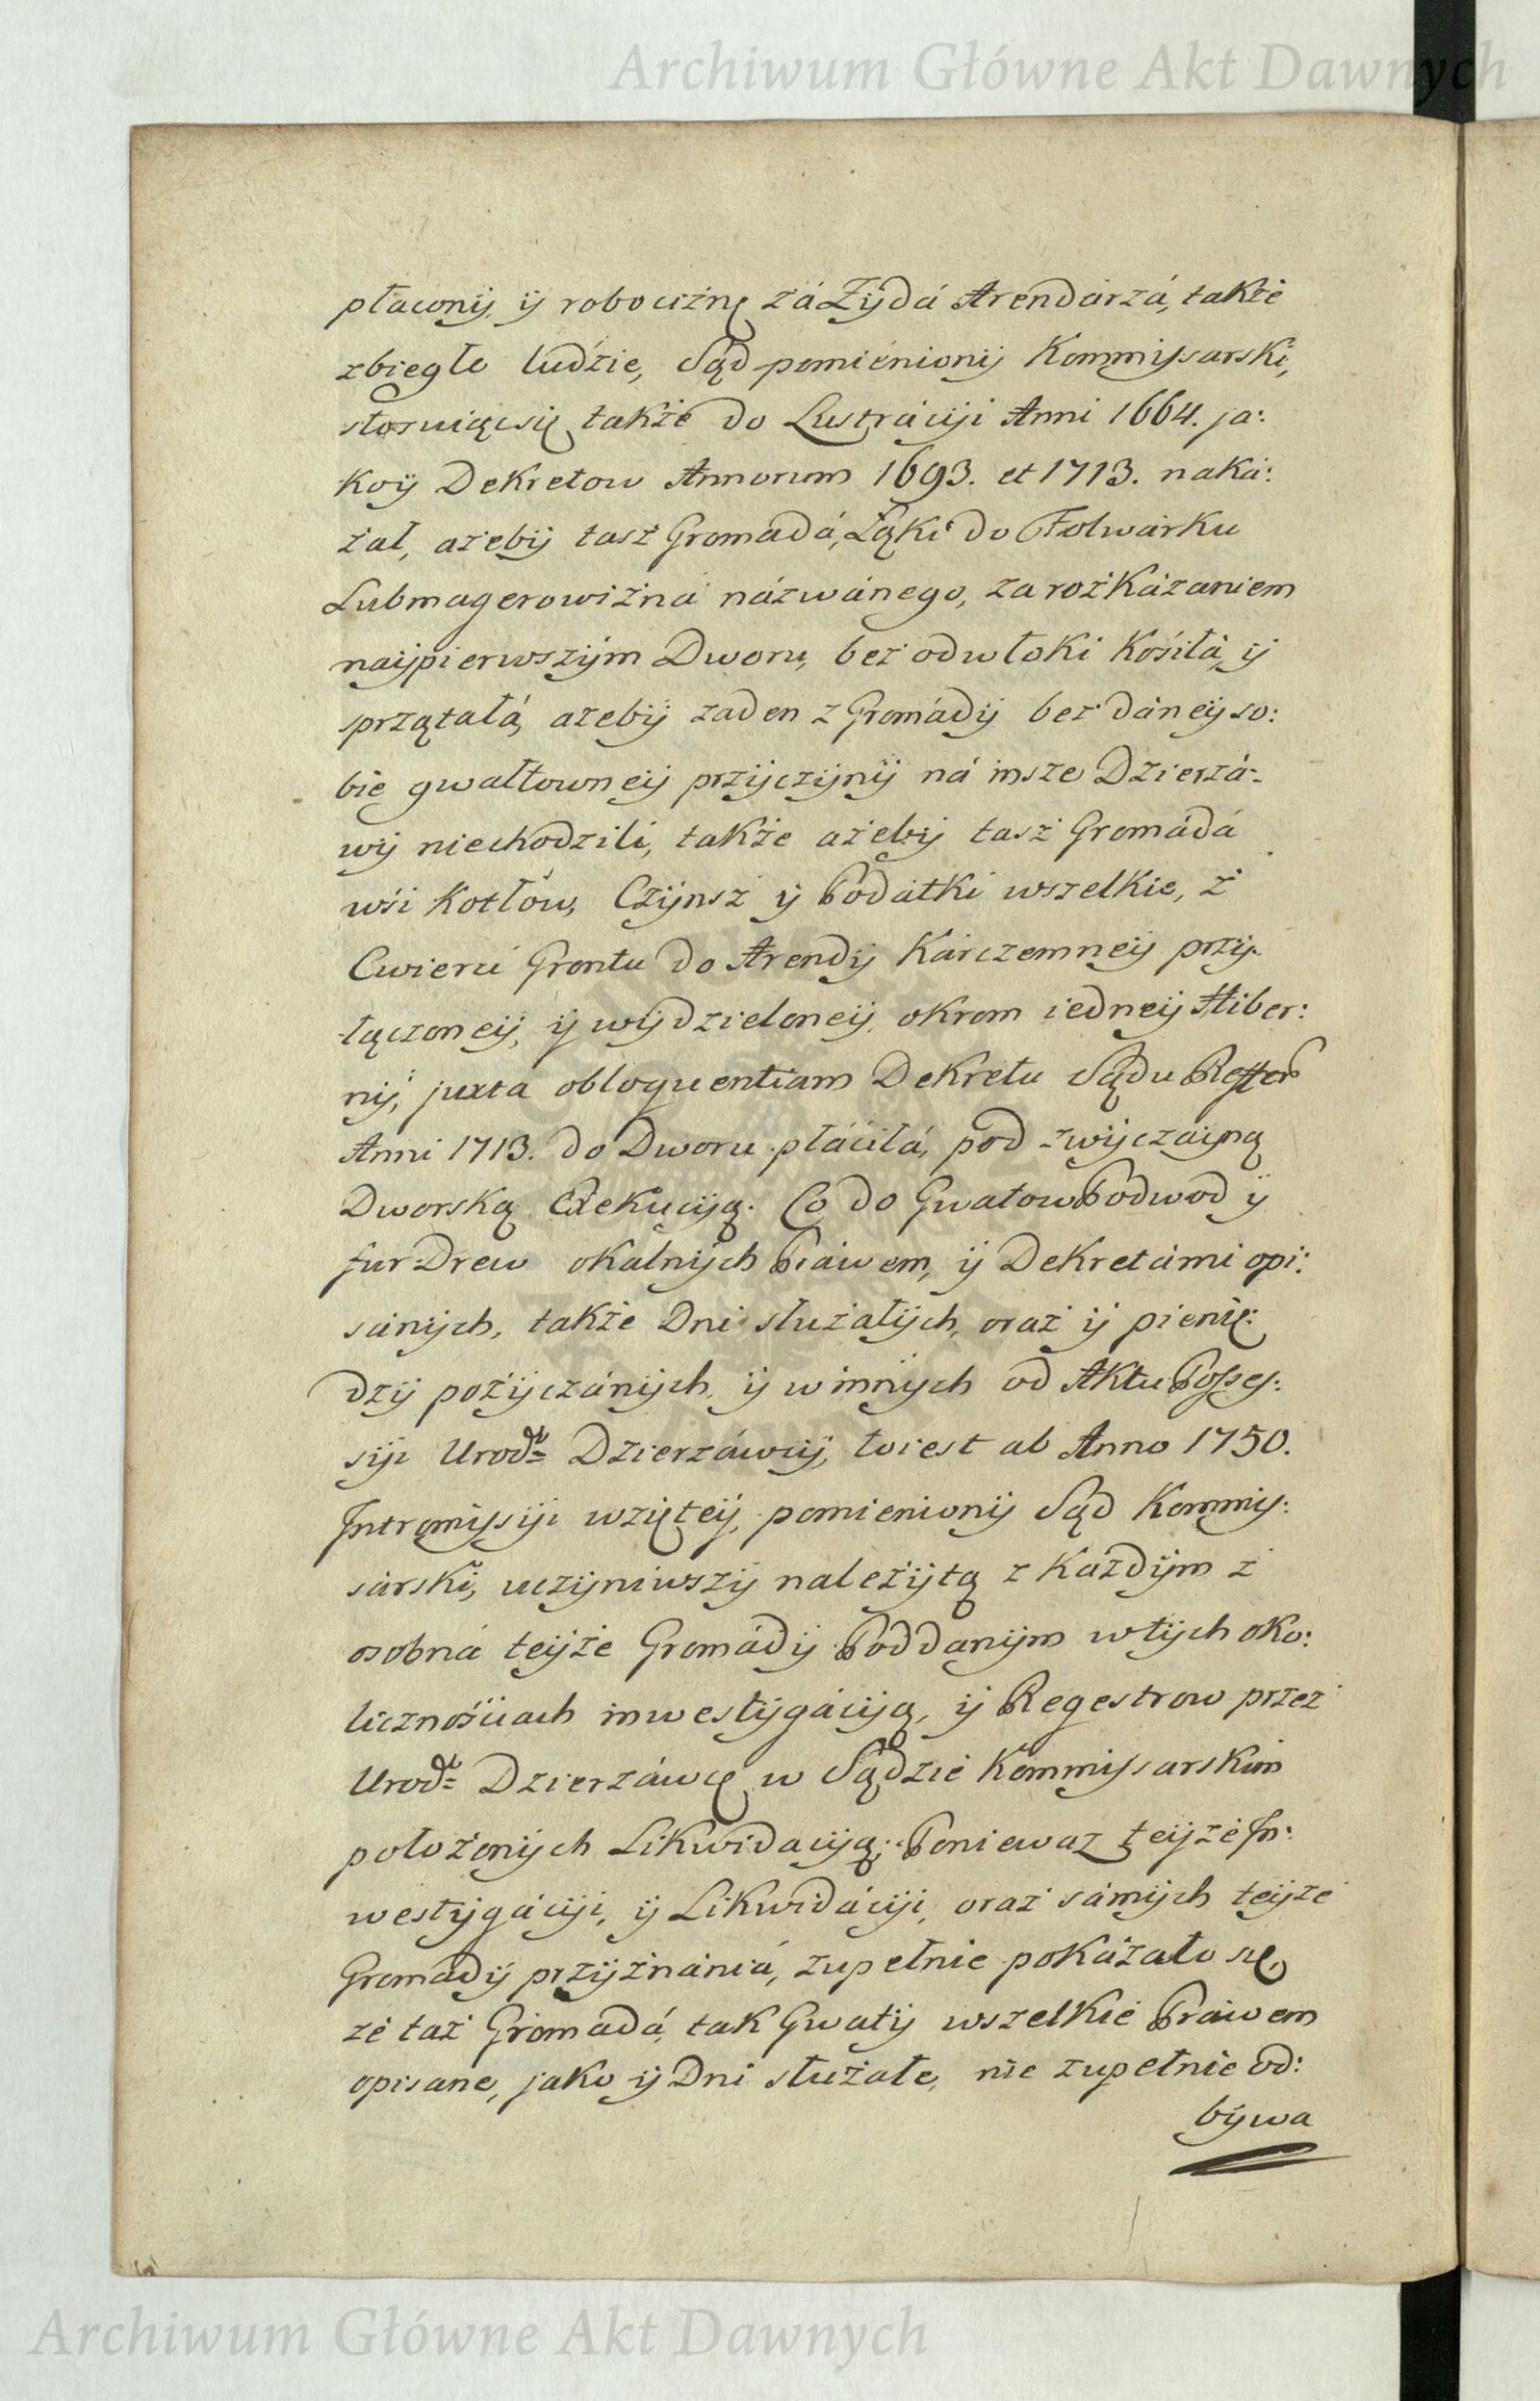 Archiwum Główne Akt Dawnych
płacony, ÿ robociznę zá Zÿdá Arendarzá, także
zbiegłe ludzie, Sąd pomienionÿ Kommissarski,
stosuiącsię także do Lustraciji Anni 1664. ja:
koÿ Dekretow Annorum 1693. et 1713. naka:
zał, ażebÿ tasz Gromadá, Łąki do Folwarku
Lubmagerowizna názwánego, za rozkazaniem
naÿpierwszÿm Dworu, bez odwłoki kośiłá, ÿ
sprzątałá, ażebÿ zaden z Gromádÿ bez daneÿ so:
bie gwałtowneÿ przÿczÿnÿ ná insze Dzierzá:
wÿ niechodzili, także ażebÿ tasz Gromádá
wśi Kotłów, Czÿnsz ÿ Podatki wszelkie, z
Cwierci Gruntu do Arendÿ Karczemneÿ przÿ:
łączoneÿ, ÿ wÿdzieloneÿ, okrom iedneÿ Hiber:
nÿ, juxta obloquentiam Dekretu Sądu Reffer
Anni 1713. do Dworu płáciłá, pod zwÿczaÿną
Dworską Exekucÿą. Co do Gwałow Podwod ÿ
fur Drew okalnÿch Prawem, ÿ Dekretámi opi:
sanÿch, także Dni służałÿch, oraz ÿ pienię:
dzÿ pożÿczánÿch, ÿ winnÿch od Aktu Posses:
sÿi Urod: Dzierzáwcÿ, toiest ab Anno 1750.
Intromissÿi wzięteÿ, pomienionÿ Sąd Kommis:
sarski, uczÿniwszÿ należÿtą z każdÿm z
osobná teÿże Gromádÿ Poddanÿm w tÿch oko:
licznośiach inwestÿgácÿą, ÿ Regestrow przez
Urod: Dzierzáwcę w Sądzie Kommissarskim
położonÿch Likwidacÿą; Poniewaz teÿże In:
westÿgácÿi, ÿ Likwidácÿi, oraz samÿch teÿże
Gromadÿ przÿznania, zupełnie pokazało się,
że taż Gromadá, tak Gwałÿ wszelkie Prawem
opisane, jako ÿ Dni służałe, nie zupełnie od:
bÿwa
Archiwum Główne Akt Dawnych